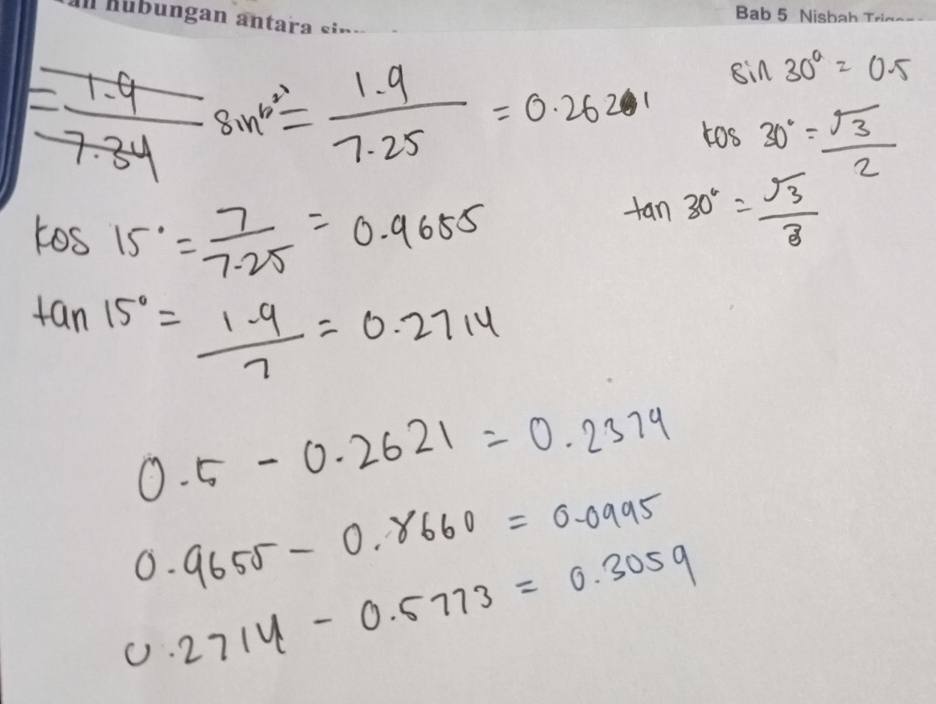 hubungan antara
Bab 5 Nisbah
= 1.9 / 7.34
sin = 1.9 / 7.25 = 0.2621
sin 30° = 0.5
kos 30° = √3 / 2
tan 30° = √3 / 3
kos 15° = 7 / 7.25 = 0.9655
tan 15° = 1.9 / 7 = 0.2714
0.5 - 0.2621 = 0.2379
0.9655 - 0.8660 = 0.0995
0.2714 - 0.5773 = 0.3059